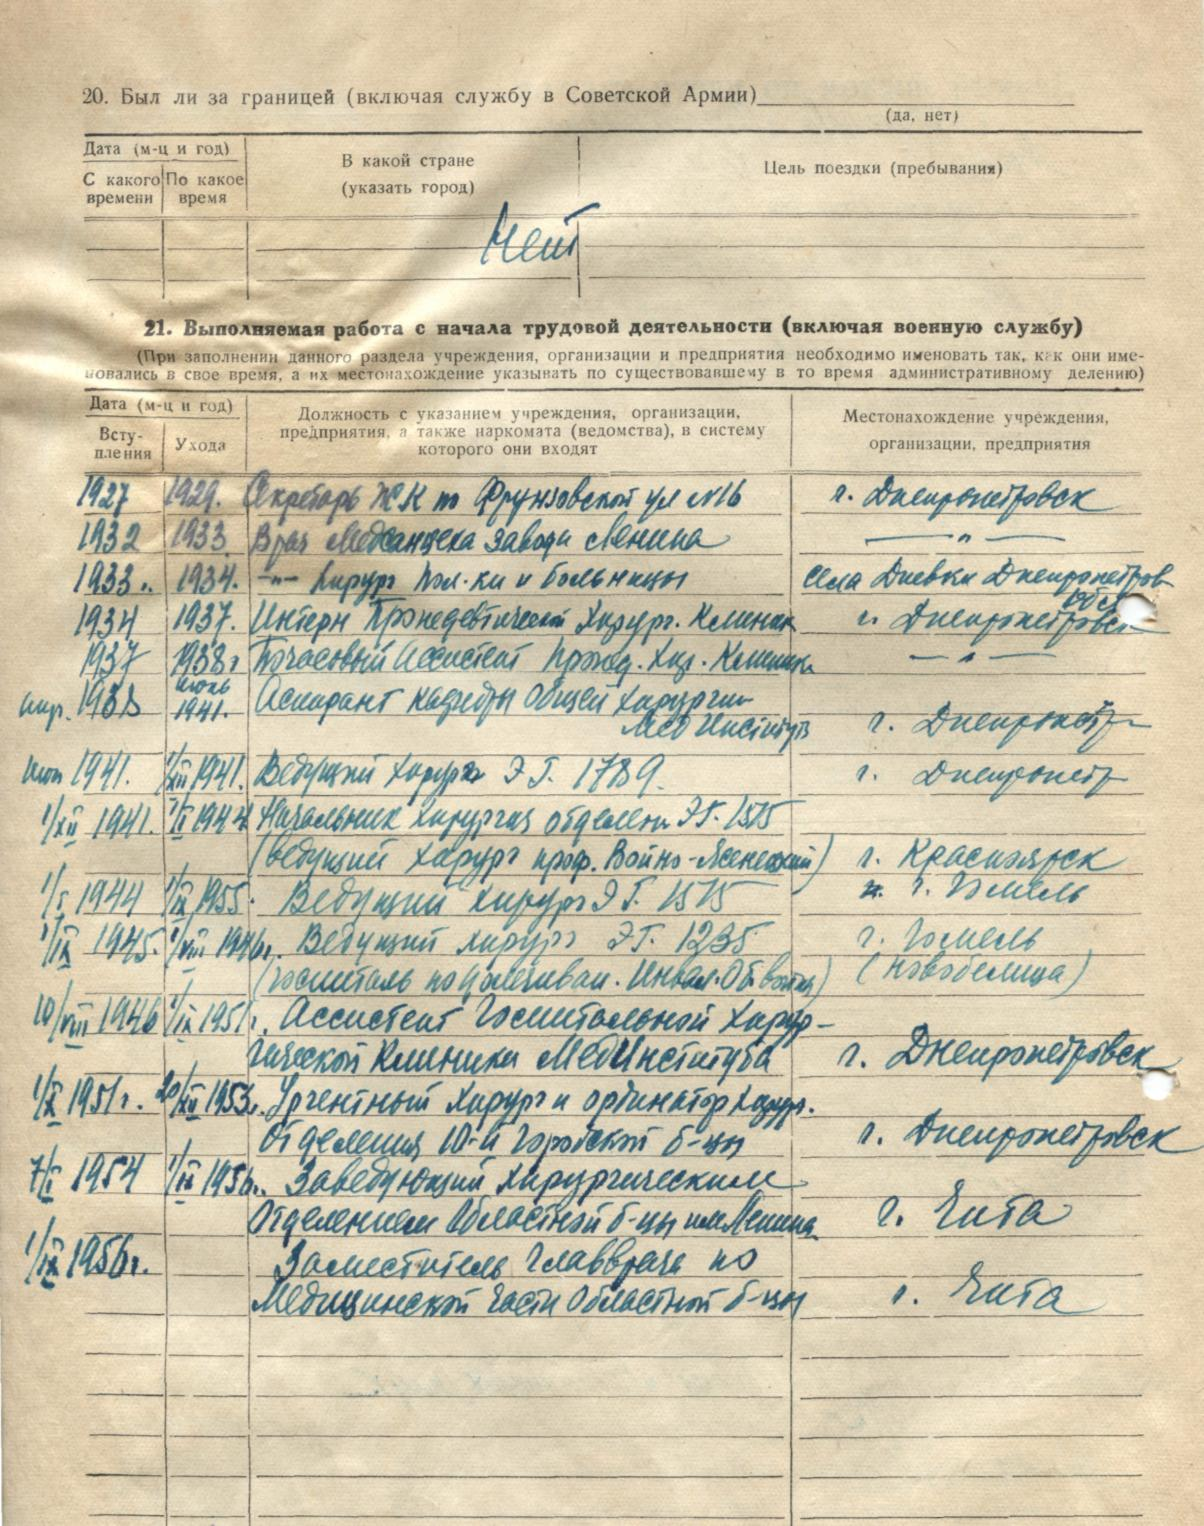 20. Был ли за границей (включая службу в Советской Армии)
(да, нет)
Дата (м-ц и год)
С какого времени
По какое время
В какой стране
(указать город)
Цель поездки (пребывания)
Нет
21. Выполняемая работа с начала трудовой деятельности (включая военную службу)
(При заполнении данного раздела учреждения, организации и предприятия необходимо именовать так, как они име-
новались в свое время, а их местонахождение указывать по существовавшему в то время административному делению)
Дата (м-ц и год)
Всту-
пления
Ухода
Должность с указанием учреждения, организации,
предприятия, а также наркомата (ведомства), в систему
которого они входят
Местонахождение учреждения,
организации, предприятия
1927 1929. Секретарь ЖК по Фрунзовской ул №16 г. Днепропетровск
1932 1933. Врач Медсанцеха завода Ленина — " —
1933 г. 1934. —"— Хирург Пол-ки и больницы села Диевки Днепропетров
обл
1934 1937. Интерн Пропедевтической Хирург. Клиники г. Днепропетровск
1937 1938 г Почасовый Ассистент Пропед. Хир. Клиники — " —
1938 июнь 1941. Аспирант кафедры Общей Хирургии
Мед Института г. Днепропетр
Июн 1941. 1/XII 1941. Ведущий хирург Э.Г. 1789. г. Днепропетр
1/XII 1941. 1/I 1944 Начальник хирургич отделен Э.Г. 1515
(ведущий хирург проф. Войно-Ясенецкий) г. Красноярск
1/I 1944 1/IX 1955. Ведущий хирург Э Г. 1515 г. Гомель
1/IX 1945. 1/VIII 1946г. Ведущий хирург Э.Г. 1235 г. Гомель
(госпиталь по долечиван. Инвал. От. войны) (Новобелица)
10/VIII 1946 1/IX 1951г. Ассистент Госпитальной Хирур-
гической Клиники МедИнститута г. Днепропетровск
1/IX 1951г. 20/XII 1953г. Ургентный хирург и ординатор хирург.
Отделения 10-й Городской б-цы г. Днепропетровск
7/I 1954 1/IX 1956г. Заведующий Хирургическим
Отделением Областной б-цы им Ленина г. Чита
1/IX 1956г. Заместитель Главврача по
Медицинской Части Областной б-цы г. Чита